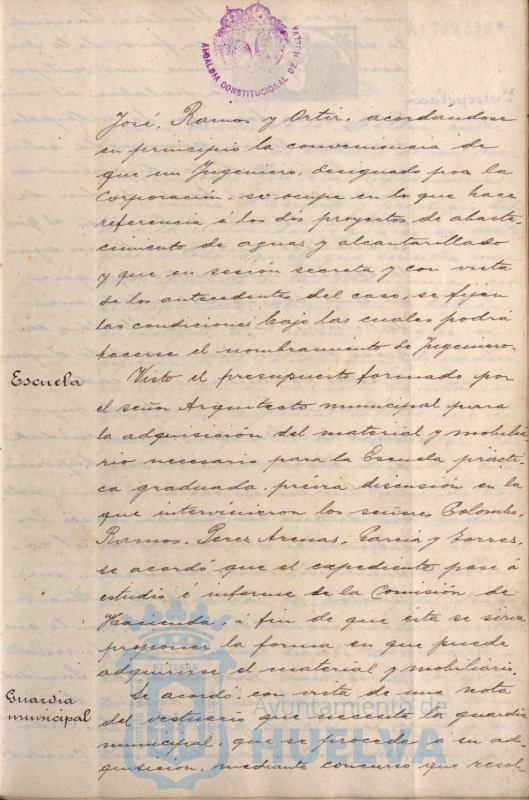 ALCALDIA CONSTITUCIONAL DE HUELVA
José, Ramos y Ortiz, acordandose
en principio la conveniencia de
que un Ingeniero, designado por la
Corporación, se ocupe en lo que hace
referencia á los dos proyectos de abaste-
cimiento de aguas y alcantarillado
y que, en sesión secreta y con vista
de los antecedentes del caso, se fijen
las condiciones bajo las cuales podrá
hacerse el nombramiento de Ingeniero.
Escuela
Visto el presupuesto formado por
el señor Arquitecto municipal para
la adquisición del material y mobilia-
rio necesario para la Escuela prácti-
ca graduada, prévia discusión en la
que intervinieron los señores Colombo,
Ramos, Perez Arenas, Garcia y Torres,
se acordó que el expediente pase á
estudio é informe de la Comisión de
Hacienda, a fin de que ésta se sirva
proponer la forma en que puede
adquirirse el material y mobiliario.
Guardia
municipal
Se acordó, con vista de una nota
del vestuario que necesita la guardia
municipal, que se proceda a su ad-
quisición, mediante concurso que resol-
Ayuntamiento de
HUELVA